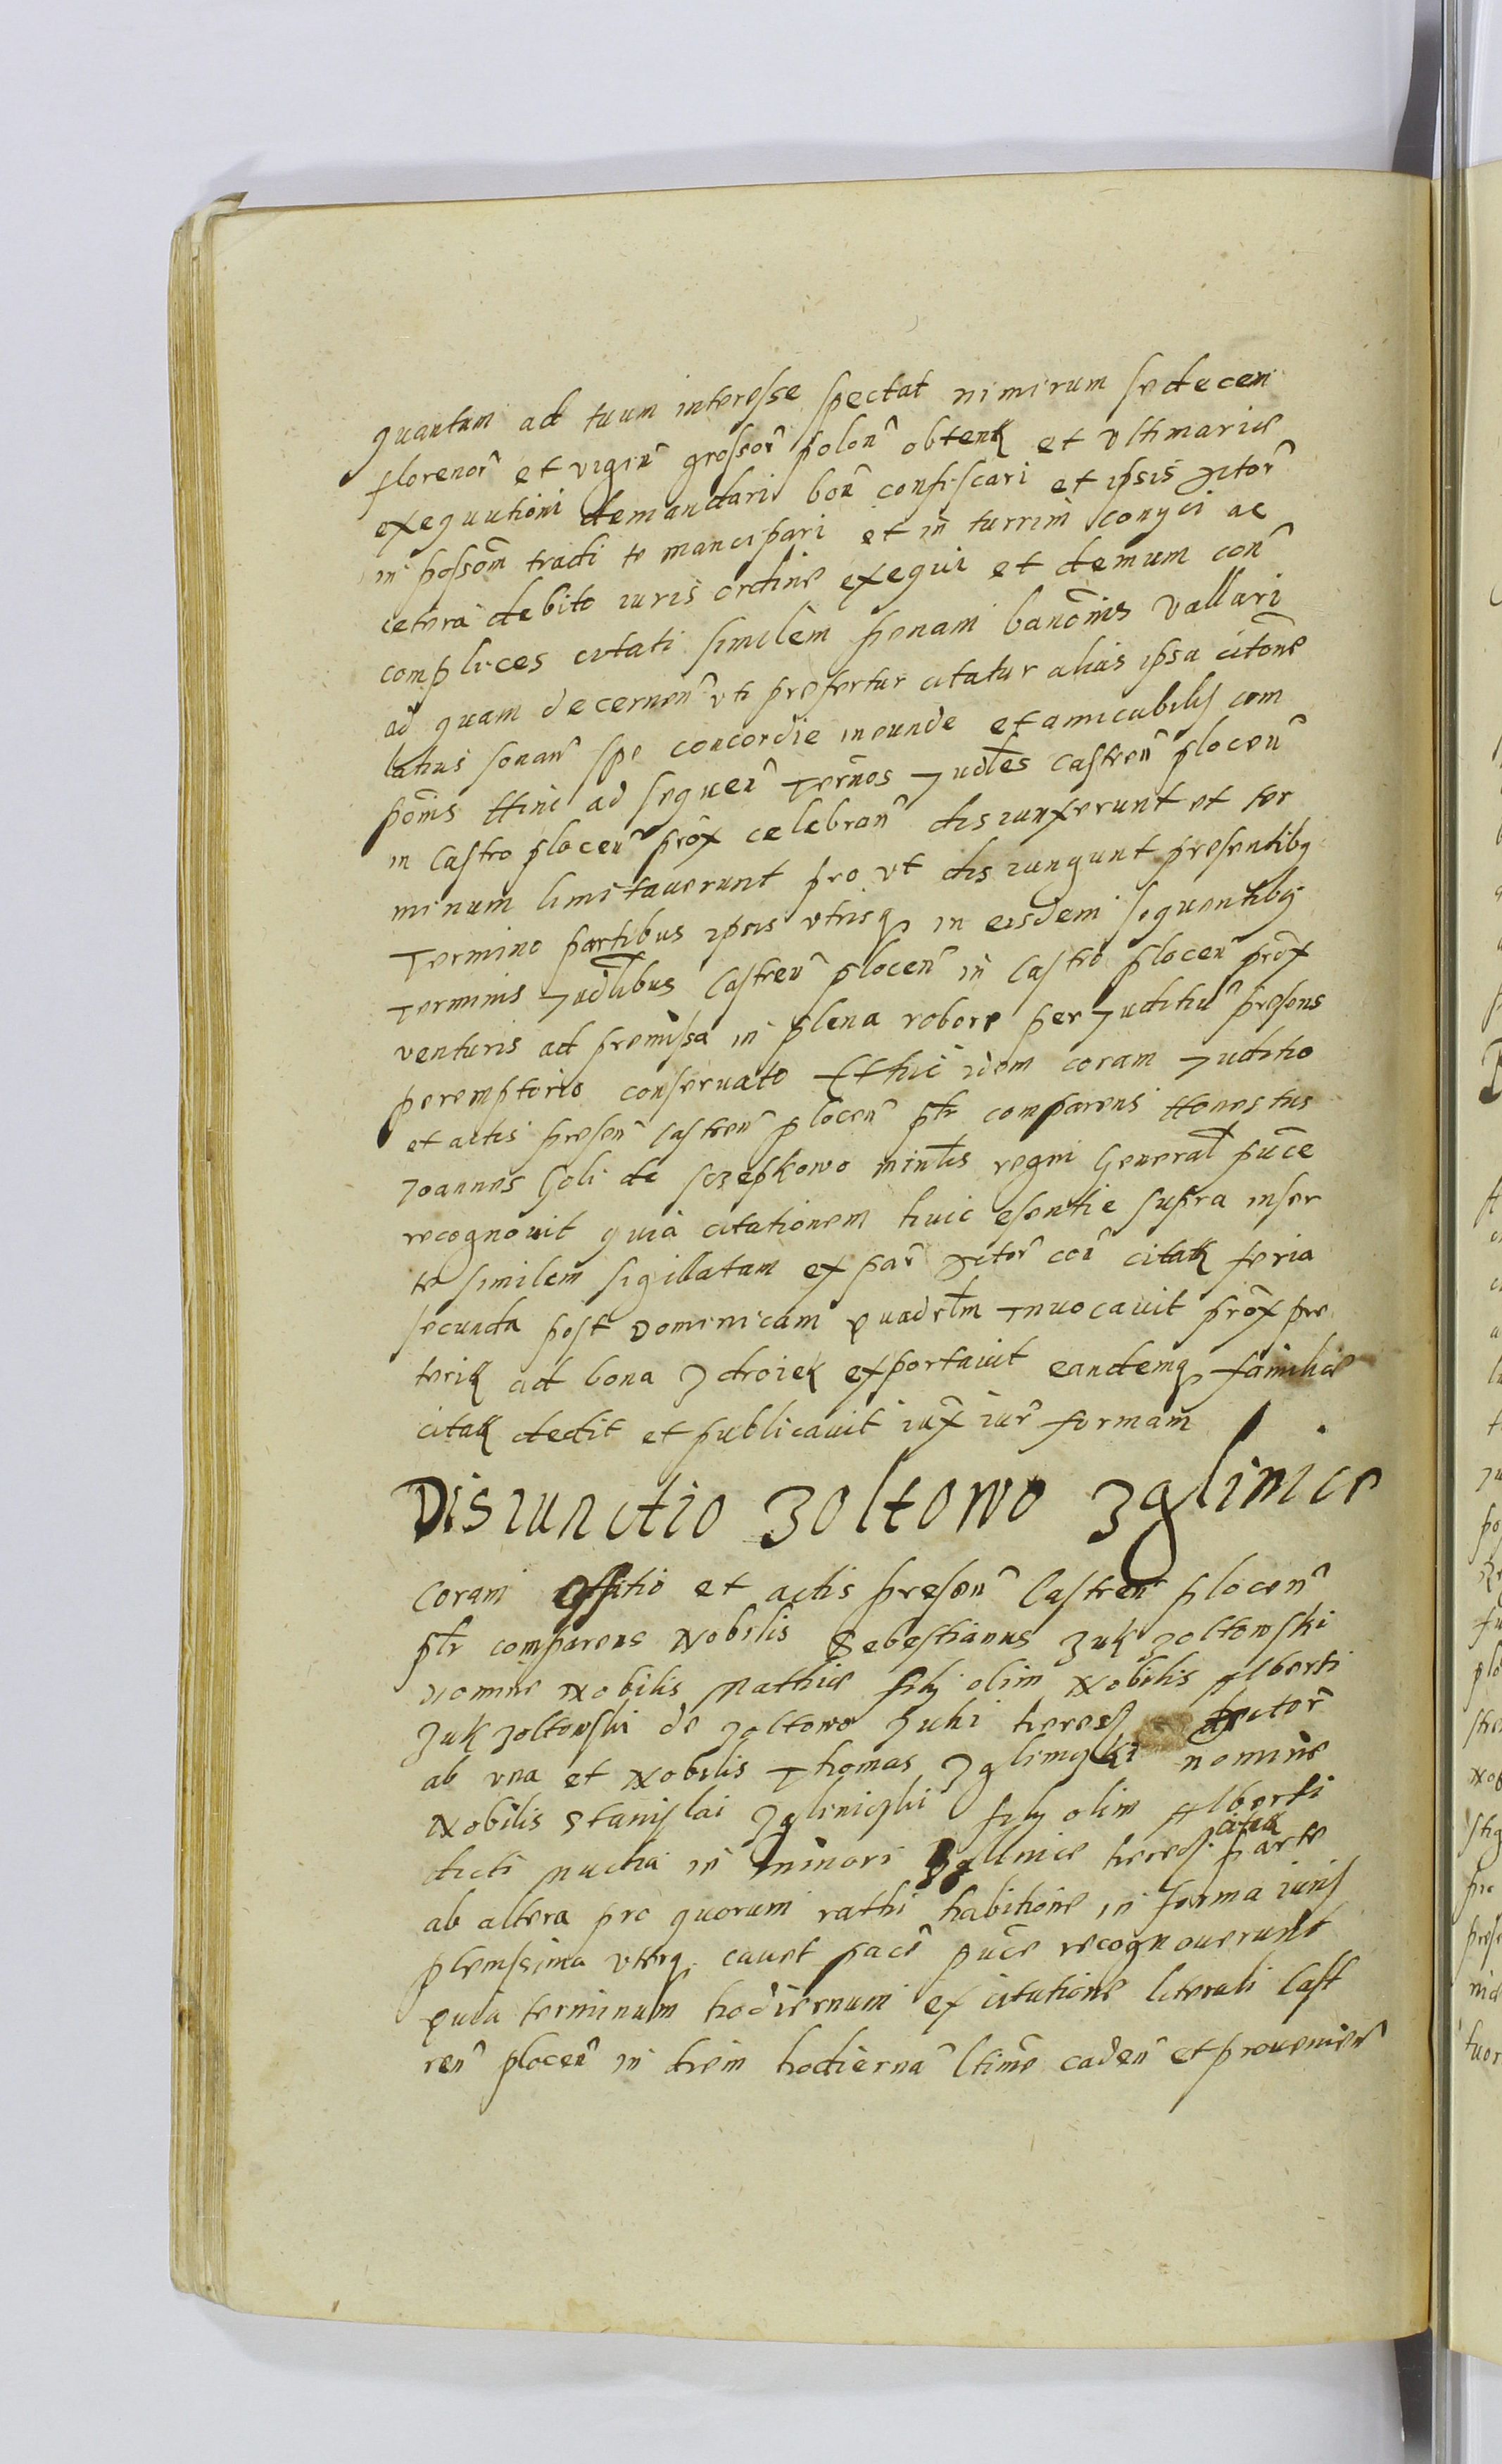 quantum ad tuum interesse spectat nimirum sedecem
florenor̃ et vigin̄ grossor̃ polon̄ obtent et vltimarie
exequutioni demandari bon̄ confiscari et ipsis actor̃
in possom̃ tradi te mancipari et in turrim conijci ac
cetera debito iuris ordine exequi et demum con̄
complices citati similem penam banōnis vallari
ad quam decernen̄ vti prefertur citatur alias ipsa citōne
latius sonan̄ spe concordie ineunde et amicabilis com
pōnis Hinc ad sequen̄ Terminos Judles Castren̄ plocen̄
in Castro plocen̄ prox celebran̄ disiunxerunt et ter
minum limitauerunt pro vt disiungunt presentibq
Termino partibus ipsis vtrisq in eisdem sequentibq
Terminis Judlibus Castren̄ plocen̄ in Castro plocen̄ prox
venturis ad premissa in plena robore per Juditiū presens
peremptorio conseruato Et hic idem coram Juditio
et actis presen̄ Castren̄ plocen̄ ptr comparens Honestus
Joannes Goli de sczepkowo minlis regni General puce
recognouit quia citationem huic esentie supra inser
te similem sigillatam ex par̄ actor̃ con̄ citat feria
secunda post Dominicam quadrlm Inuocauit prox pre
terit ad bona Zdroiek exportauit eandemq familie
citat dedit et publicauit iux iur̄ formam
Disiunctio Zoltowo Zglinice
Coram Offitio et actis presen̄ Castren̄ plocen̄
ptr comparens Nobilis Sebestianus Zuk Zoltowski
nomine Nobilis Mathie filij olim Nobilis Alberti
Zuk Zoltowski de Zoltowo Zuki heres actor̃
ab vna et Nobilis Thomas Zglinicki nomine
Nobilis Stanislai Zglinicski filij olim Alberti
dicti Mucha in minori Zglinice hered citat parte
ab altera pro quorum rathi habitione in forma iuris
plenissima vterq cauet pace puce recognouerunt
quia terminum hodiernum ex citatione literali Cast
ren̄ plocen̄ in diem hodiernā ltime caden̄ et prouenien̄